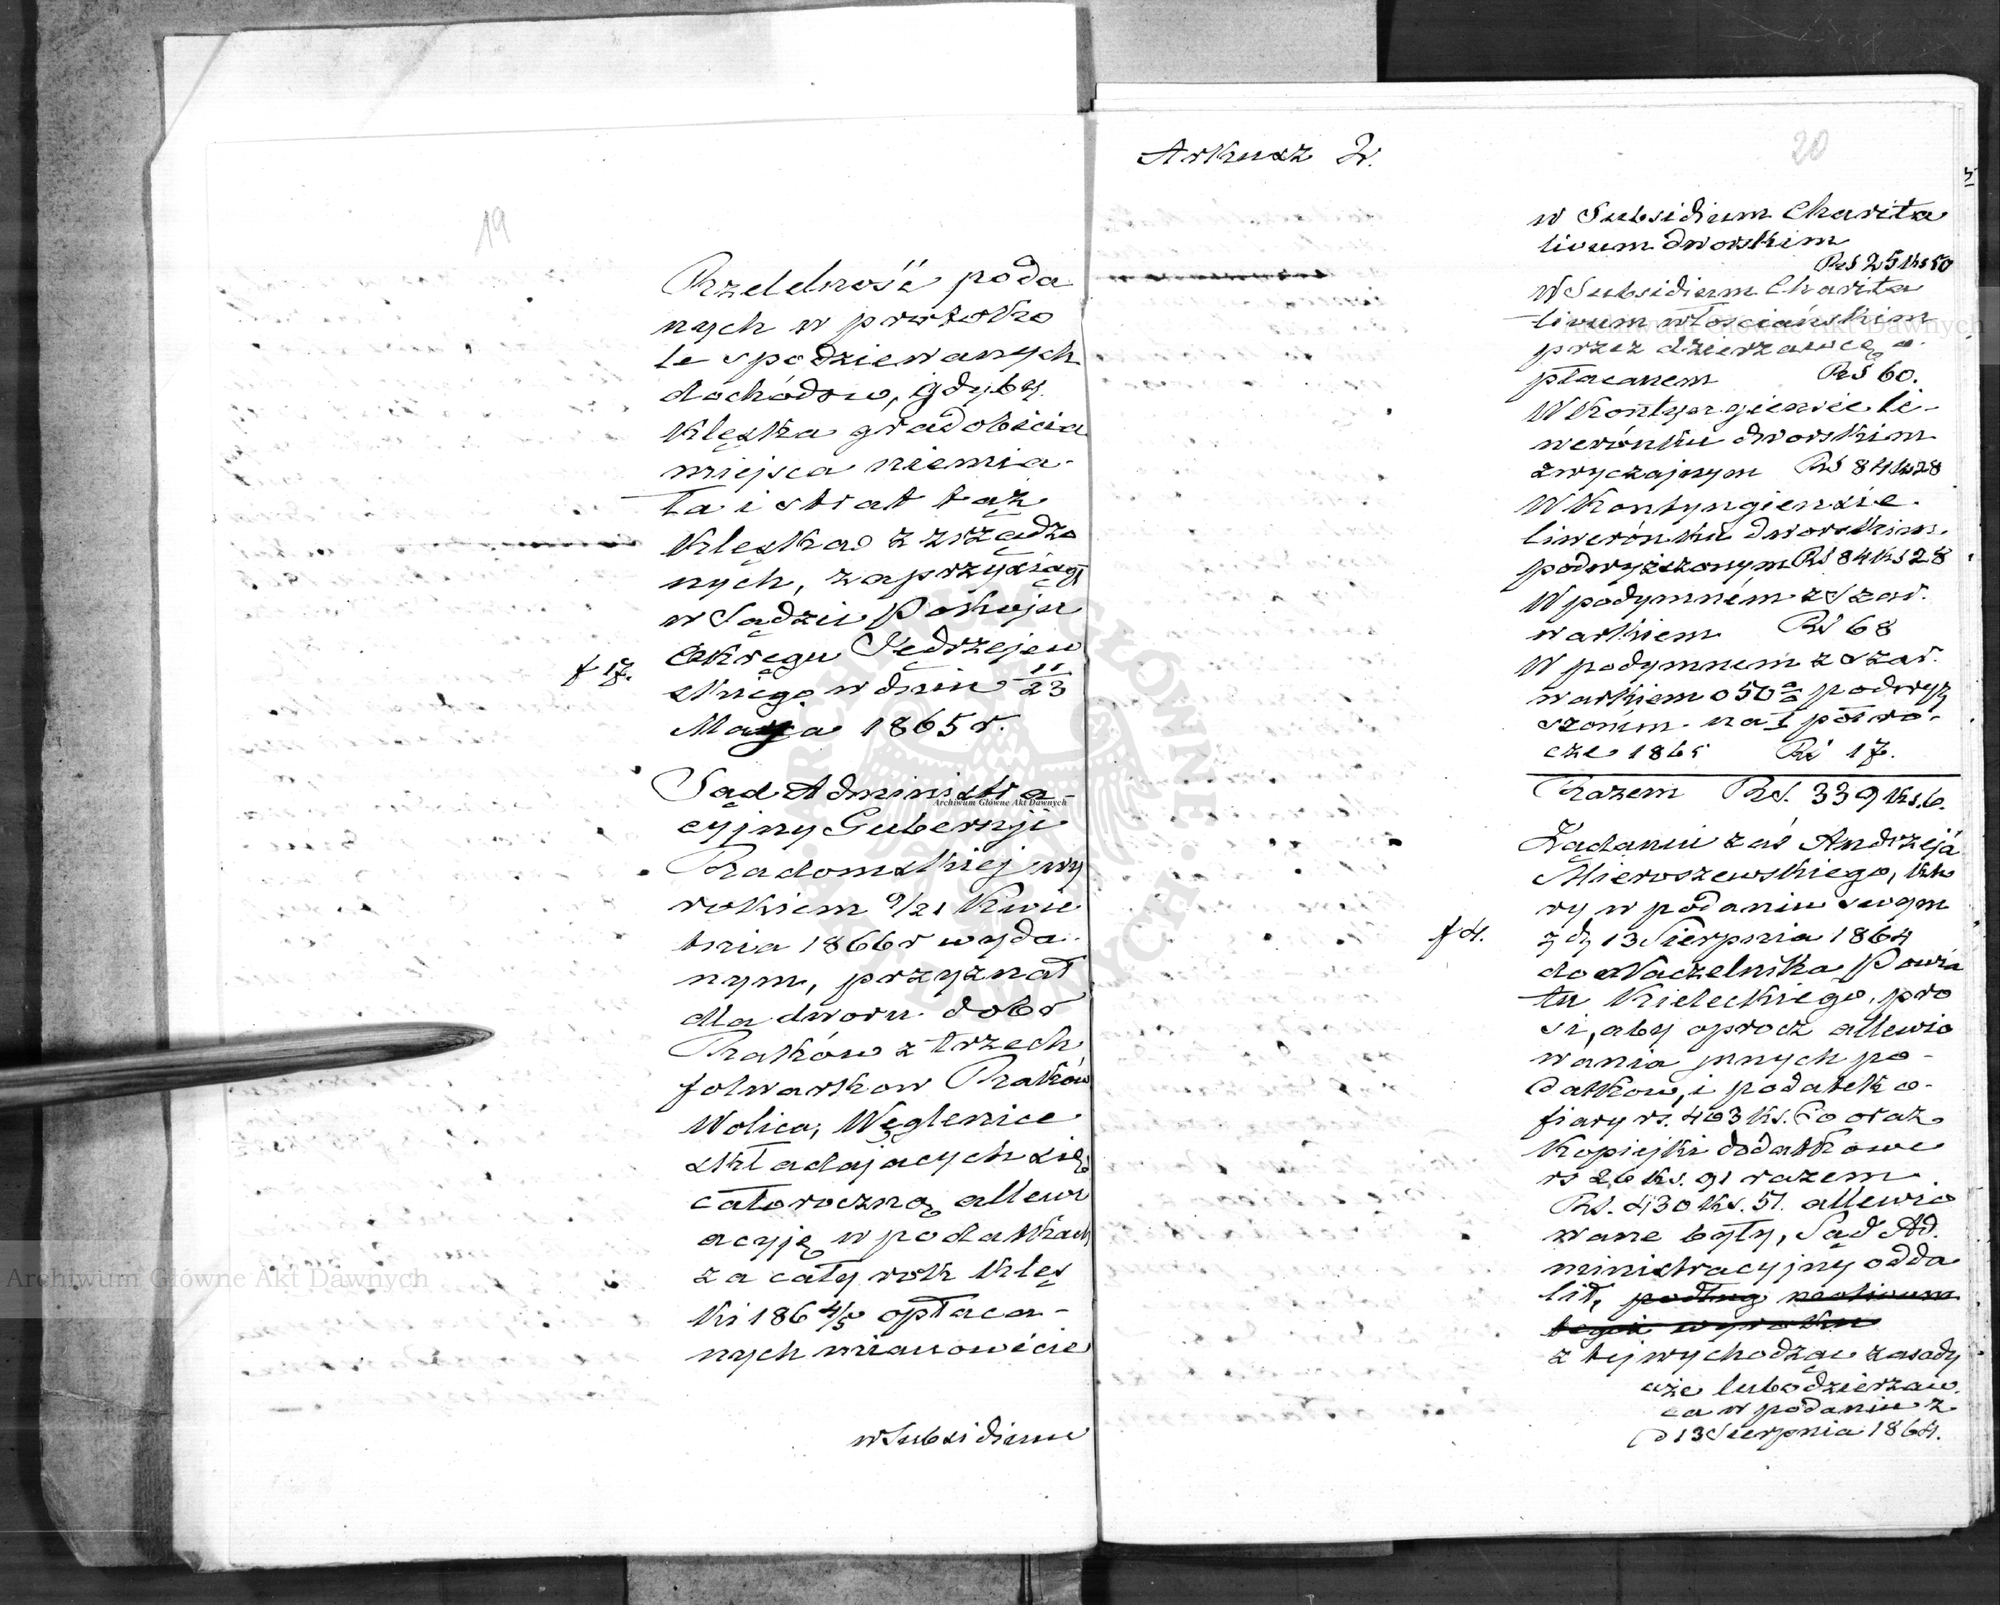 19
Rzetelność poda
nych w protoko
le spodziewanych
dochodów, gdyby
klęska gradobicia
miejsca niemia-
ła i strat taż
klęską zrządzo
nych, zaprzysiągł
w Sądzie Pokoju
Okręgu Jędrzejew
f 17. skiego w dniu 11/23
Maja 1865 r.
Sąd Administra-
cyjny Gubernji
Radomskiej wy
rokiem 9/21 Kwie
tnia 1866 r wyda-
nym, przyznał
dla dworu dobr
Raków z trzech
folwarkow Raków
Wolica, Węglenice
składających się
całoroczną allewi
acyję w podatkach
za cały rok klęs
ki 1864/5 opłaca-
nych mianowicie
w Subsidium
Arkusz 2.
20
w Subsidium Charita
tivum dworskim
Rs 25 ks 50
W Subsidium Charita
tivum włościańskim
przez dzierzawcę o
płacanem Rs 60.
W Kontyngiensie li-
werónku dworskim
zwyczajnym Rs 84 ks 28
W Kontyngiensie
liwerónku dworskim
podwyższonym Rs 84 ks 28
W podymném z Szar-
warkiem Rs 68
W podymnem z szar-
warkiem o 50% podwyż
szonem na I półro-
cze 1865 Rs 17.
Razem Rs. 339 ks. 6.
Żądaniu zaś Andrzeja
Mieroszewskiego, któ
ry w podaniu swym
f 4. z d. 13 Sierpnia 1864
do Naczelnika Powia
tu Kieleckiego, pro
si, aby oprocz allewio
wania innych po-
datkow, i podatek o-
fiary rs. 403 ks. 60 oraz
kopiejki dodatkowe
rs 26 ks. 91 razem
Rs. 430 ks. 51. allewio
wane były, Sąd Ad-
ministracyjny odda
lił, podług
wyroku
z tej wychodząc zasady
że lubo dzierzaw
ca w podaniu z
d 13 Sierpnia 1864.
Archiwum Główne Akt Dawnych
Archiwum Główne Akt Dawnych
Archiwum Główne Akt Dawnych
ARCHIWUM GŁÓWNE AKT DAWNYCH